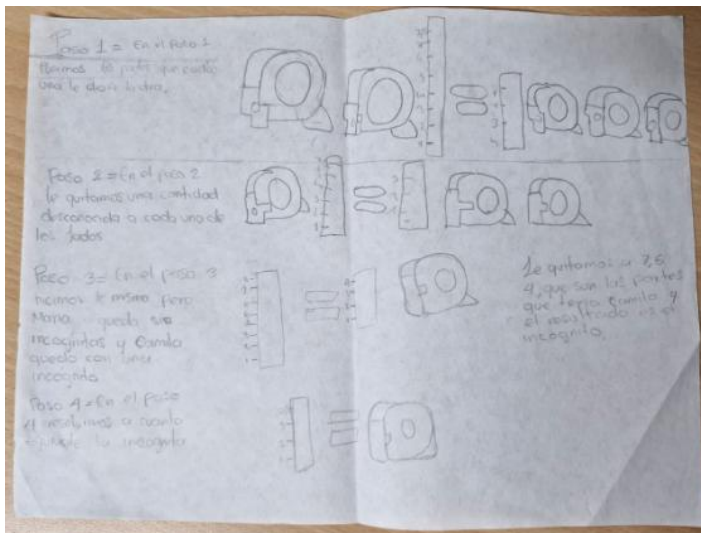 Paso 1 = En el Paso 1
una le dará
Paso 2 = En el paso 2
le quitamos una cantidad
desconocida a cada uno de
los lados
Paso 3 = En el paso 3
hicimos lo mismo pero
Maria quedo sin
incognitas y Camilo
quedo con una
incognita
Paso 4 = En el paso
4 resolvimos a cuanto
equivale la incognita
Le quitamos a 7,5
4, que son las partes
que tenia Camilo y
el resultado es el
incognito.